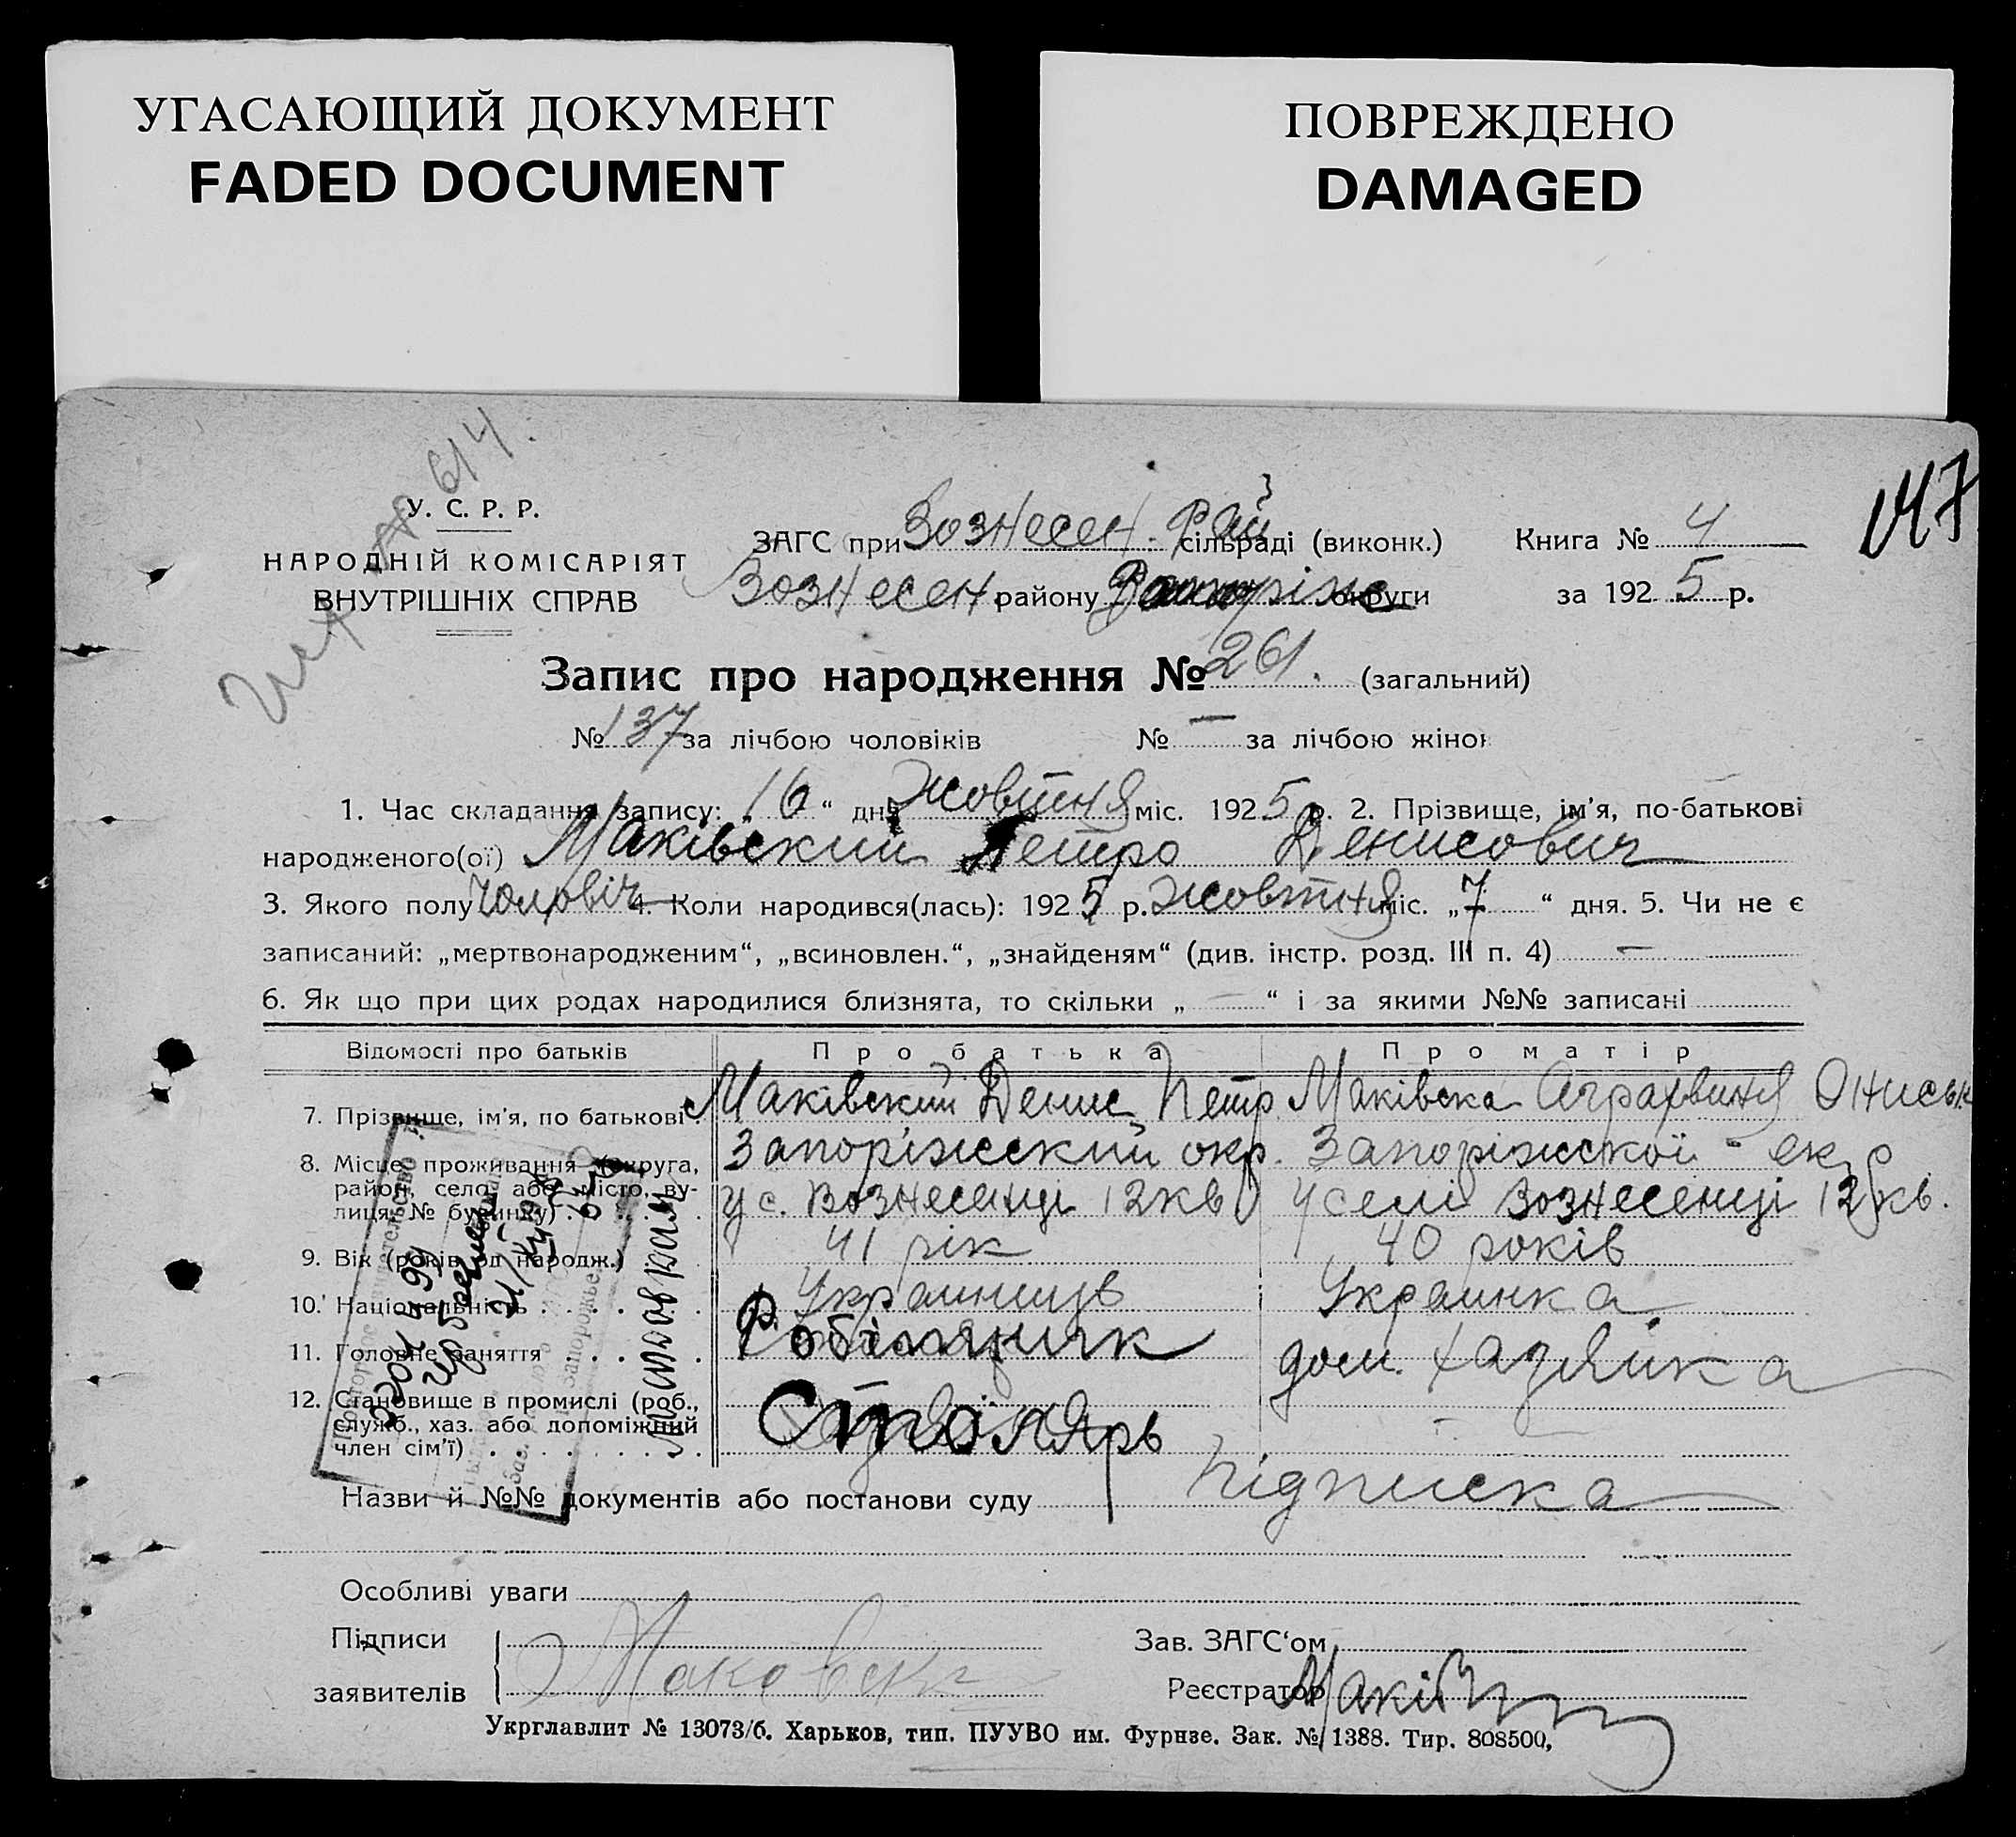 УГАСАЮЩИЙ ДОКУМЕНТ
FADED DOCUMENT
ПОВРЕЖДЕНО
DAMAGED
614.
147
У. С. Р. Р.
НАРОДНІЙ КОМІСАРІЯТ
ВНУТРІШНІХ СПРАВ
ЗАГС при Вознесен. Рай сільраді (виконк.)
Вознесен. району округи
Книга № 4
за 1925 р.
Запис про народження № 261. (загальний)
№ 137 за лічбою чоловіків № — за лічбою жінок
1. Час складання запису: „16“ дня Жовтня міс. 1925 р. 2. Прізвище, ім'я, по-батькові
народженого(ої) Маківский Петро Денисович
3. Якого полу Чоловіч 4. Коли народився(лась): 1925 р. Жовтня міс. „7“ дня. 5. Чи не є
записаний: „мертвонародженим“, „всиновлен.“, „знайденям“ (див. інстр. розд. III п. 4) —
6. Як що при цих родах народилися близнята, то скільки „ — “ і за якими №№ записані
Відомості про батьків Про батька Про матір
7. Прізвище, ім'я, по батькові. Маківский Денис Петр. Маківска Аграфвиня Ониськ
8. Місце проживання (округа, район, село або місто, вулиця, № будинку) Запоріжский окр. Запоріжскої - окр
у с. Вознесенці 12кв у селі Вознесенці 12 кв.
9. Вік (років од народж.) 41 рік 40 років
10. Національність Украинців Украинка
11. Головне заняття Робітник дом. хазяйка
12. Становище в промислі (роб., служб., хаз. або допоміжний член сім'ї) Столярь —
Назви й №№ документів або постанови суду Підписка
Особливі уваги
Підписи
заявителів Маковск
Зав. ЗАГС‘ом
Реєстратор
Укрглавлит № 13073/б. Харьков, тип. ПУУВО им. Фурнзе. Зак. № 1388. Тир. 808500,